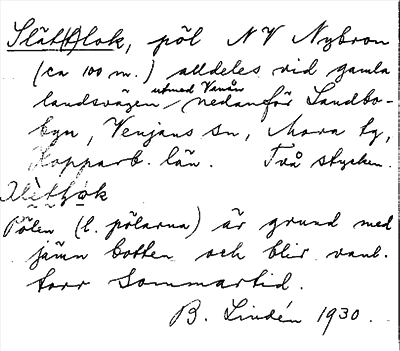 Slätt(h)lok, pöl NV Nybron
(ca 100 m.) alldeles vid gamla
utmed Vanån
landsvägen, nedanför Landbo-
byn, Venjans sn, Mora tg,
Kopparb. län. Två stycken.
Pölen (l. pölarna) är grund med
jämn botten och blir vanl.
torr sommartid.
B. Lindén 1930.